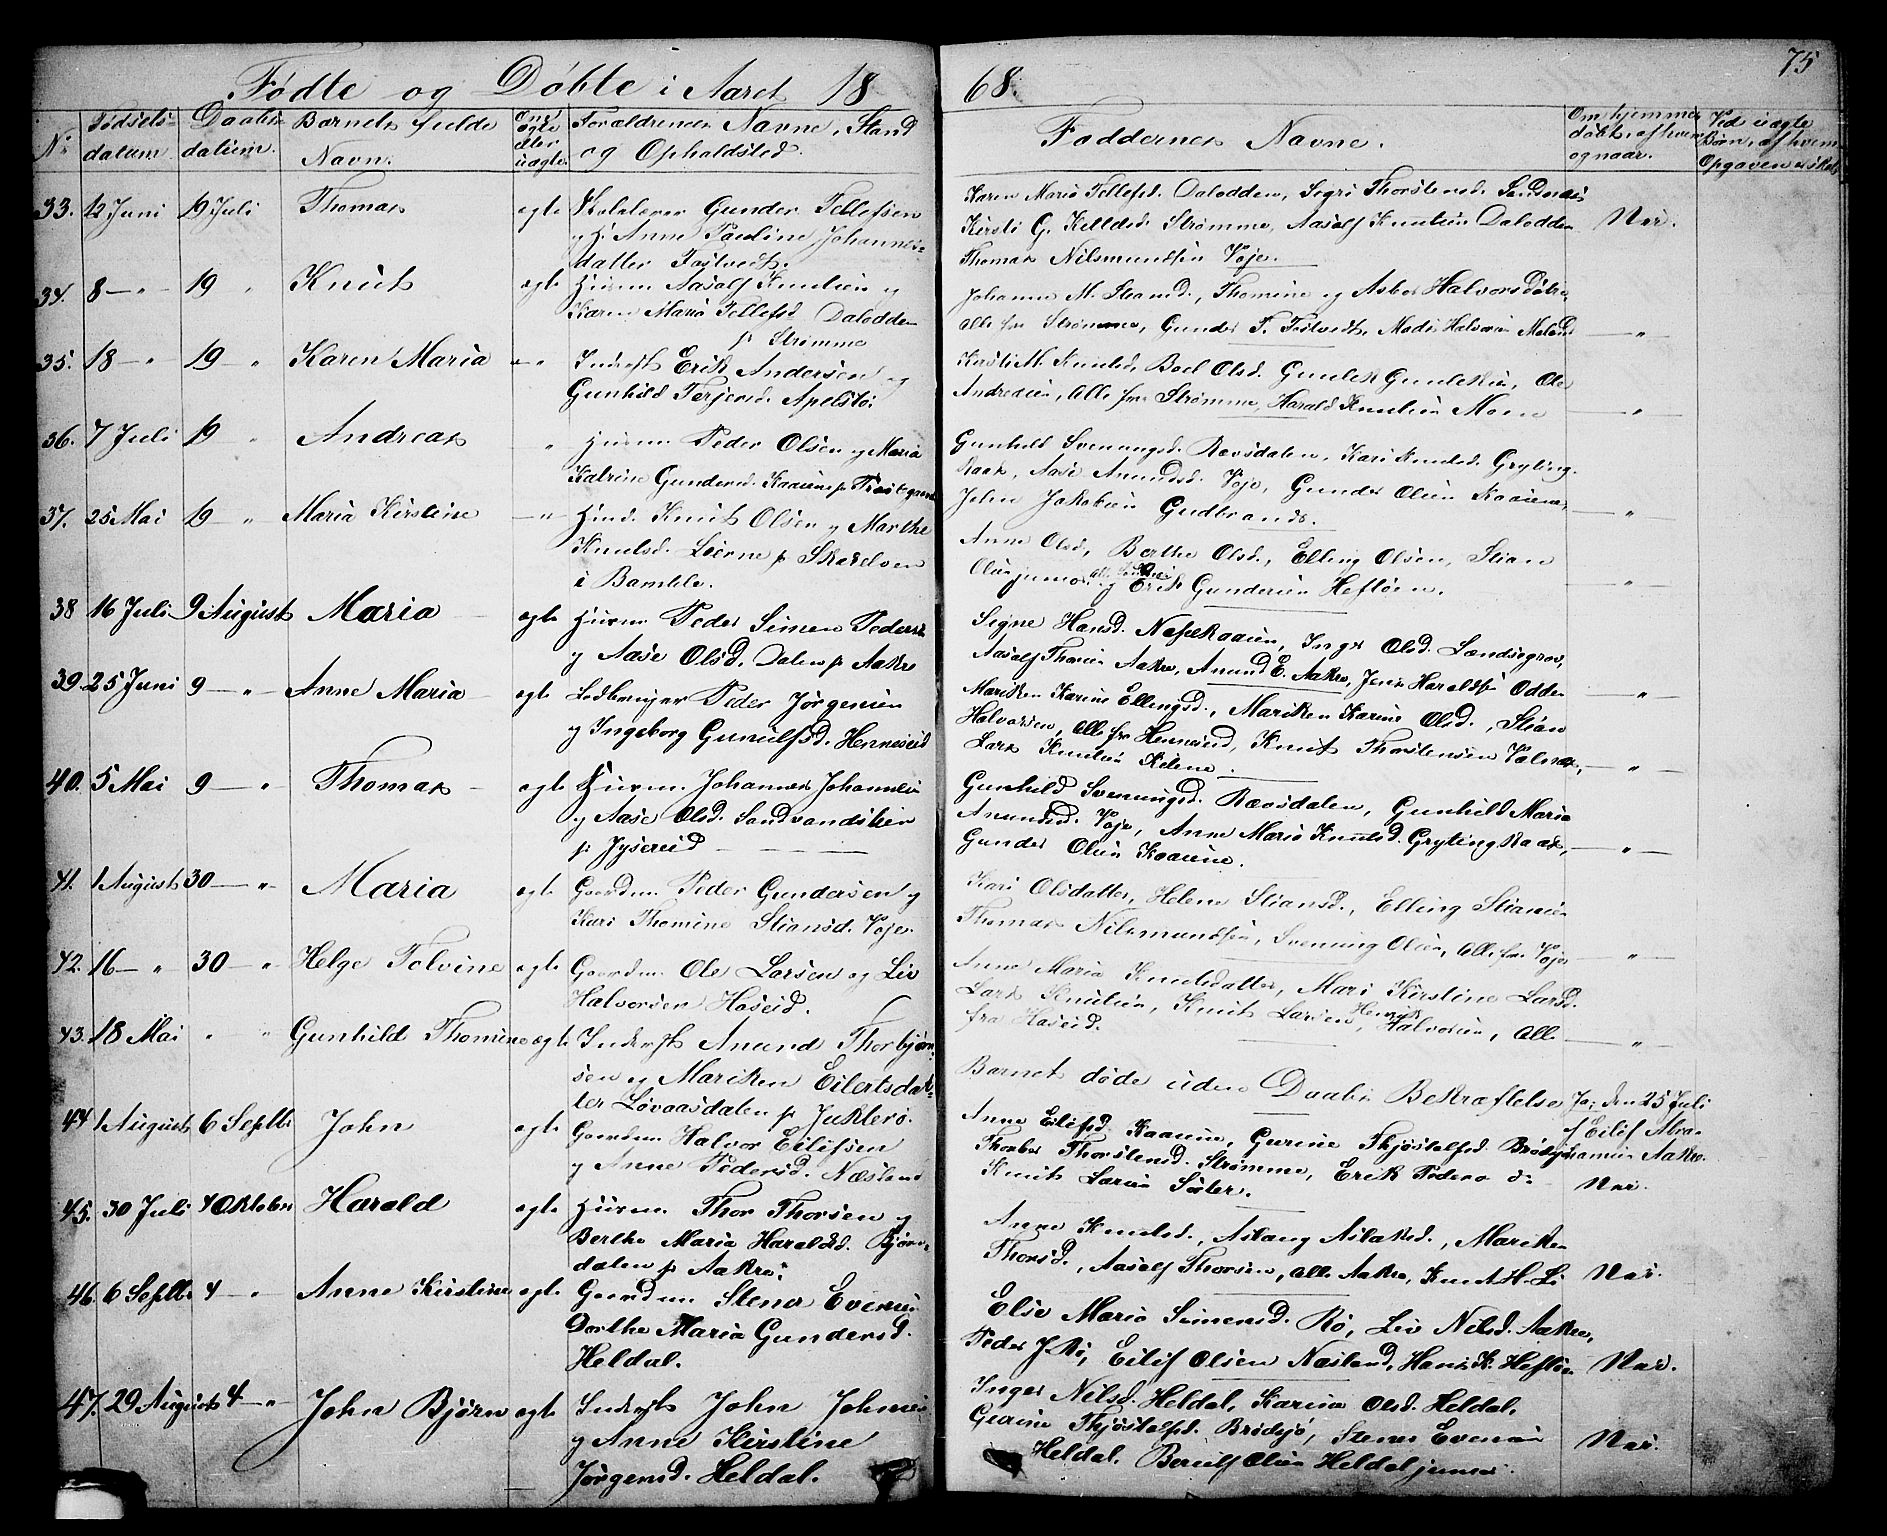 75
Fødte og Døbte i Aaret 1868.
No
Fødsels-
datum.
Daabs-
datum.
Barnets fulde
Navn.
Om
ægte
eller
uægte
Forældrenes Navne, Stand
og Opholdsted.
Faddernes Navne.
Om hjemme
døbt, af hvem
og naar.
Ved uægte
Børn, af hvem
Opgaven er skeet
33. 12 Juni 19 Juli Thomas ægte Skolelærer Gunder Tellefsen
og H. Anne Pauline Johannes-
datter Tostvedt.
Karen Maria Tellefsd. Dalodden, Sigri Thorstensd. Sandnæs
Kirsti G. Kittilsd. Strømme, Aasolf Knutsen Dalodden
Thomas Nilsmundsen Voje.
Nei.
34. 8 — " 19 " Knut ægte Husm. Aasolf Knutsen og
Karen Maria Tellefsd. Dalodden
p. Strømme
Johanne M. Strand, Thomine og Asber Halvorsdøtre
alle fra Strømme, Gunder T. Tostvedt, Mads Halvorsen Meland
— " —
35. 18 — " 19 " Karen Maria — " Inderst Erik Andersen og
Gunhild Terjesd. Apelstø.
Kirsti M. Knutsd., Boel Olsd. Gunlek Gunleksen, Ole
Andreasen, alle fra Strømme, Harald Knutsen Moen
— " —
36. 7 Juli 19 " Andreas " Husm. Peder Olsen og Maria
Katrine Gundersd. Kaasene p.
Gunhild Svenungsd. Rævsdalen, Kari Knutsd. Gryting-
Raak, Aase Amundsd. Voje, Gunder Olsen Kaasene,
John Jakobsen Gudbrands.
— " —
37. 25 Mai 19 — " Maria Kirstine — " — Hmd. Knut Olsen og Marthe
Knutsd. Lierne p. Skarelven
i Bamble.
Anne Olsd., Berthe Olsd., Elling Olsen, Stian
Olsen junior, og Erik Gundersen Hefløen.
— " —
38 16 Juli 9 August Maria ægte Husm. Peder Simen Peders
og Aase Olsd. Dalen p. Aakre
Signe Hansd. Næsekaasen, Inger Olsd. Landsogrov,
Aasolf Thorsen Aakre, Amund E. Aakre, Jens Haraldsen Odden
— " —
39. 25 Juni 9 — " Anne Maria ægte Ledbruger Peder Jørgensen
og Ingeborg Gunulfsd. Henneseid
Mariken Karine Ellingsd., Mariken Karine Olsd., Stian
Halvorsen, alle fra Henneseid, Knut Thorstensen Valnæs,
Lars Knutsen Kilene.
— " —
40. 5 Mai 9 — " Thomas ægte Husm. Johannes Johannesen
og Aase Olsd. Sandvandskier
p. Jysereid
Gunhild Svenungsd. Rævsdalen, Gunhild Maria
Amundsd. Voje, Anne Maria Knutsd. Gryting Raak,
Gunder Olsen Kaasene.
— " —
41. 1 August 30 — " Maria ægte Gaardm. Peder Gundersen og
Kari Thomine Stiansd. Voje.
Kari Olsdatter, Helene Stiansd., Elling Stiansen
Thomas Nilsmundsen, Svenning Olsen, alle fra Voje
— " —
42. 16 — " 30 — " Helge Tolvine ægte Gaardm. Ole Larsen og Liv
Halvorsen Haseid.
Anne Maria Knutsdatter, Mari Kirstine Larsd.
Lars Knutsen, Knut Larsen, Henrik Halvorsen, alle
fra Haseid.
— " —
43. 18 Mai " " Gunhild Thomine ægte Inderst Amund Thorbjørn-
sen og Mariken Eilertsdat-
ter Løvaasdalen p. Juklerø.
Barnet døde uden Daabs Bekræftelse
Ja, den 25 Juli
af Eilif Abra-
hamsen Aakre.
44 1 August 6 Septbr John ægte Gaardm. Halvor Eilifsen
og Anne Pedersd. Næsland
Anne Eilifsd. Kaasene, Gurine Thjøstolfsd. Brødsjø
Thorber Thorstensd. Strømme, Erik Peders do
Knut Larsen Sister.
Nei.
45. 30 Juli 4 Oktober Harald ægte Husm. Thor Thorsen og
Berthe Maria Haraldsd. Bjørn-
dalen p. Aakre.
Anne Knutsd., Aslaug Aslaksd., Mariken
Thorsd., Aasolf Thorsen, alle Aakre, Knut H. Li
Nei.
46. 6 Septbr 4 — " Anne Kirstine ægte Gaardm. Stener Evensen
Dorthe Maria Gundersd.
Heldal.
Else Maria Simensd. Rø, Liv Nilsd. Aakre,
Peder J. Rø, Eilif Olsen Næsland, Hans K. Hefløen
Nei.
47. 29 August 4 — " John Bjørn ægte Inderst John Johnsen
og Anne Kirstine
Jørgensd. Heldal.
Inger Nilsd. Heldal, Karine Olsd. Heldal,
Gurine Thjøstolfsd. Brødsjø, Stener Evensen
Heldal. Berulf Olsen Heldal junior.
Nei.